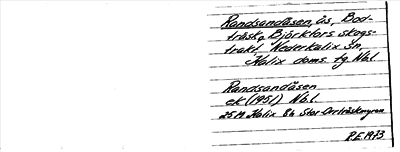 Randsandåsen, ås, Bod-
träsk, Björkfors skogs-
trakt, Nederkalix sn,
Kalix doms. tg Nbl.
Randsandåsen
ek (1951) Nbl.
25 M Kalix 8b Stor-Orrträskmyren
R.E. 1973